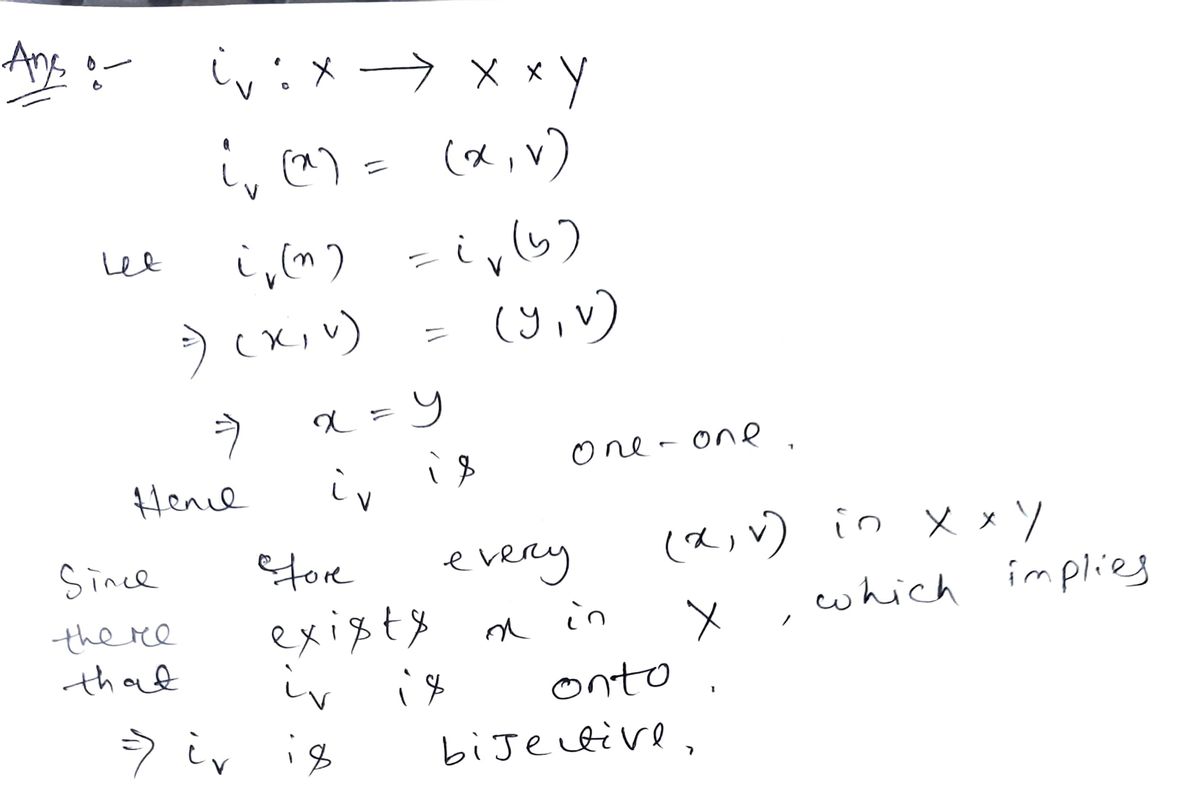 Ans :- i_v : X → X × Y
i_v (x) = (x, v)
Let i_v(n) = i_v(y)
⇒ (x, v) = (y, v)
⇒ x = y
Hence i_v is one-one.
Since fore every (x, v) in X × Y
there exists x in X, which implies
that i_v is onto.
⇒ i_v is bijective,